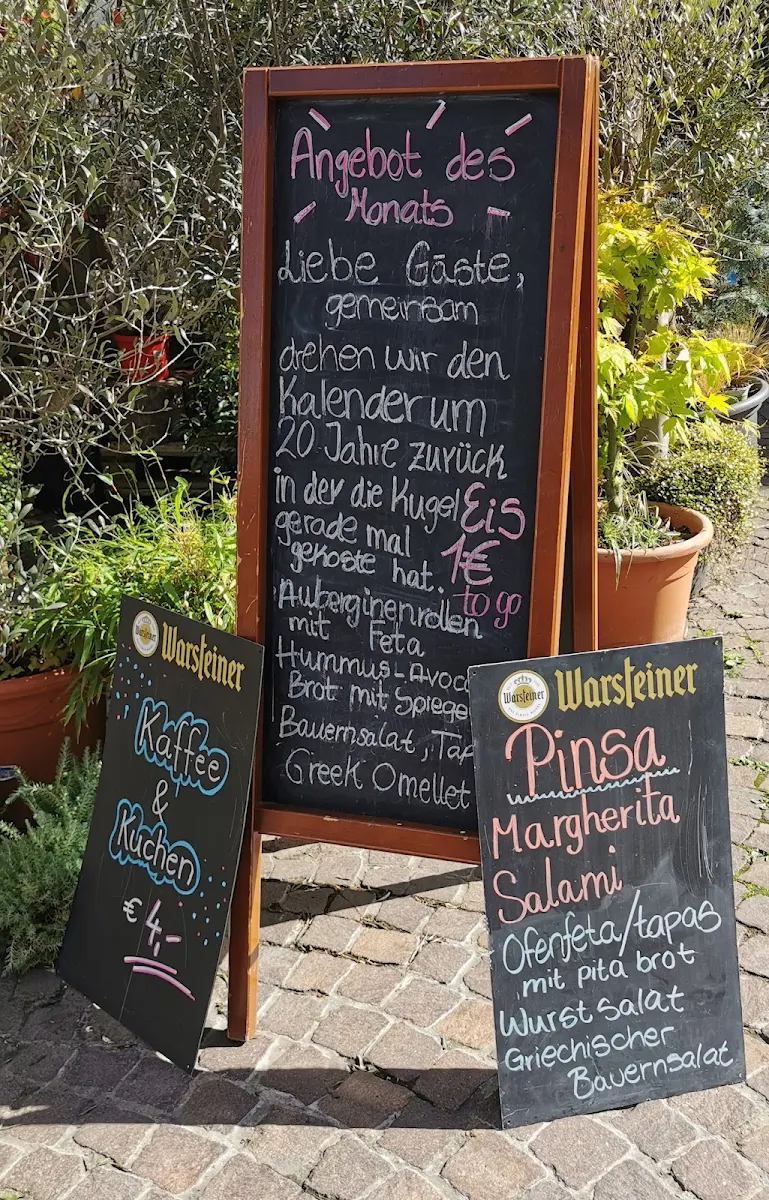 Angebot des
Monats
Liebe Gäste,
gemeinsam
drehen wir den
Kalender um
20 Jahre zurück
in der die Kugel
gerade mal
gekoste hat.
Eis
1€
to go
Auberginenrollen
mit Feta
Hummus-Avoc
Brot mit Spiege
Bauernsalat, Tap
Greek Omellet
Warsteiner
Kaffee
&
Kuchen
€ 4,-
Warsteiner
Warsteiner
Pinsa
Margherita
Salami
Ofenfeta/tapas
mit pita brot
Wurstsalat
Griechischer
Bauernsalat